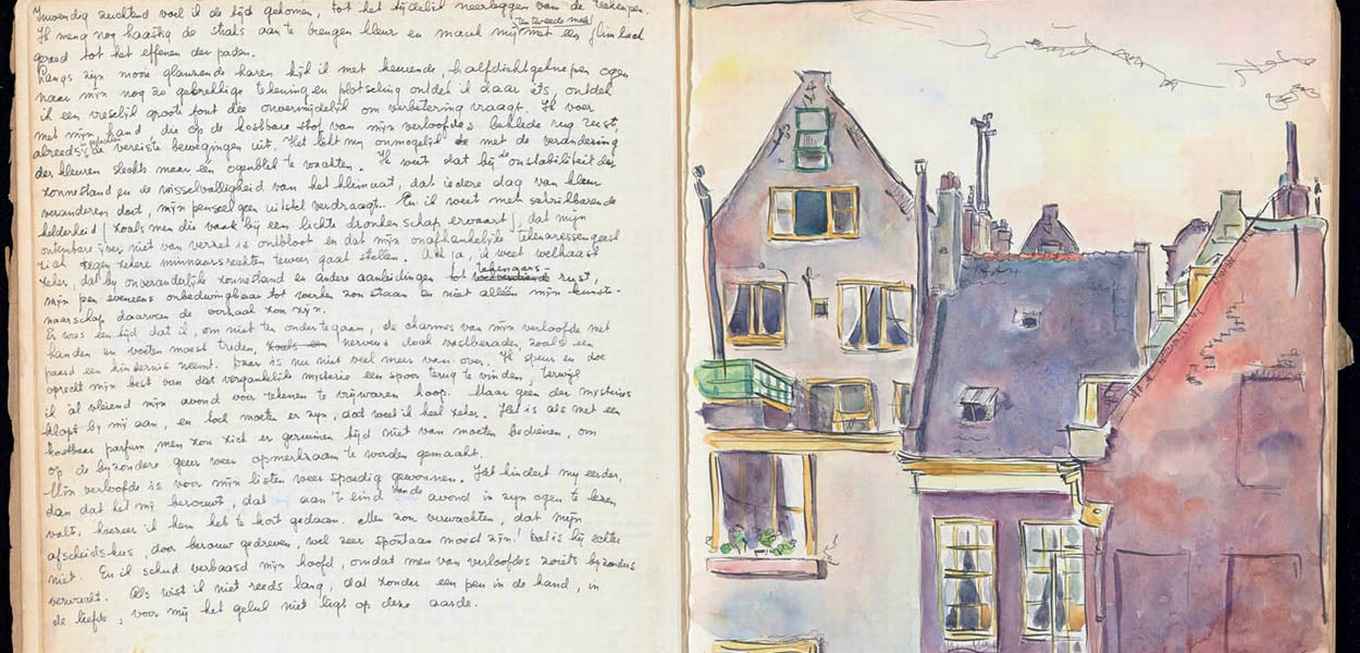 Inwendig zuchtend voel ik de tijd gekomen, tot het tijdelijk neerleggen van de tekenpen.
Ik meng nog haastig de straks aan te brengen kleur en maak mij ten tweede male met een glimlach
gereed tot het effenen der paden.
Langs zijn mooie glanzende haren kijk ik met keurende, halfdichtgeknepen ogen
naar mijn nog zo gebrekkige tekening en plotseling ontdek ik daar iets, ontdek
ik een vreselijk grote fout die onvermijdelijk om verbetering vraagt. Ik voer
met mijn hand, die op de kostbare stof van mijn verloofde's beklede rug rust,
alreeds de vereiste bewegingen uit. Het lijkt mij onmogelijk met de verandering
der kleuren slechts maar een ogenblik te wachten. Ik weet dat bij de onstabiliteit der
zonnestand en de wisselvalligheid van het klimaat, dat iedere dag van kleur
veranderen doet, mijn penseel geen uitstel verdraagt. En ik weet met schrikbarende
helderheid (zoals men die vaak bij een lichte dronkenschap ervaart), dat mijn
ontembare ijver niet van verzet is ontbloot en dat mijn onafhankelijke tekenaressengeest
zich tegen zekere minnaarsrechten teweer gaat stellen. Ach ja, ik weet welhaast
zeker, dat bij onveranderlijk zonnestand en andere aanleidingen tot tekengans- rust,
mijn pen eveneens onbedwingbaar tot werken zou staan en niet alléén mijn kunste-
naarschap daarvan de oorzaak zou zijn.
Er was een tijd dat ik, om niet ten onder te gaan, de charmes van mijn verloofde met
handen en voeten moest treden, nerveus doch welberaden, zoals een
paard een hindernis neemt. Daar is nu niet veel meer van over. Ik speur en doe
oprecht mijn best van dat vergankelijk mysterie een spoor terug te vinden, terwijl
ik al vleiend mijn avond voor tekenen te vrijwaren hoop. Maar geen der mysteries
klapt bij mij aan, en toch moeten er zijn, dat weet ik heel zeker. Het is als met een
kostbaar parfum, men zou zich er geruimen tijd niet van moeten bedienen, om
op de bijzondere geur weer opmerkzaam te worden gemaakt.
Mijn verloofde is voor mijn listen weer spoedig gewonnen. Het hindert mij eerder,
dan dat het mij berouwt, dat aan 't eind van de avond in zijn ogen te lezen
valt, hoezeer ik hem heb te kort gedaan. Men zou verwachten, dat mijn
afscheidskus, door berouw gedreven, wel zeer spontaan moest zijn! Dat is hij echter
niet. En ik schud verbaasd mijn hoofd, omdat men van verloofdes zoiets bijzonders
verwacht. Als wist ik niet reeds lang, dat zonder een pen in de hand, in
de liefde, voor mij het geluk niet ligt op deze aarde.